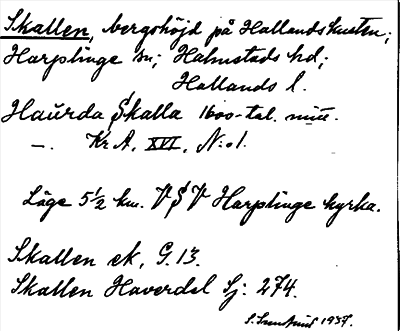 Skallen, bergshöjd på Hallandskusten;
Harplinge sn; Halmstads hd;
Hallands l.
Haŭrda Skalla 1600-tal. mitt.
—. Kr.A. XVI. N:o1.
Läge 5½ km. VSV Harplinge kyrka.
Skallen ek. G.13.
Skallen Haverdal Sj: 274.
1937.